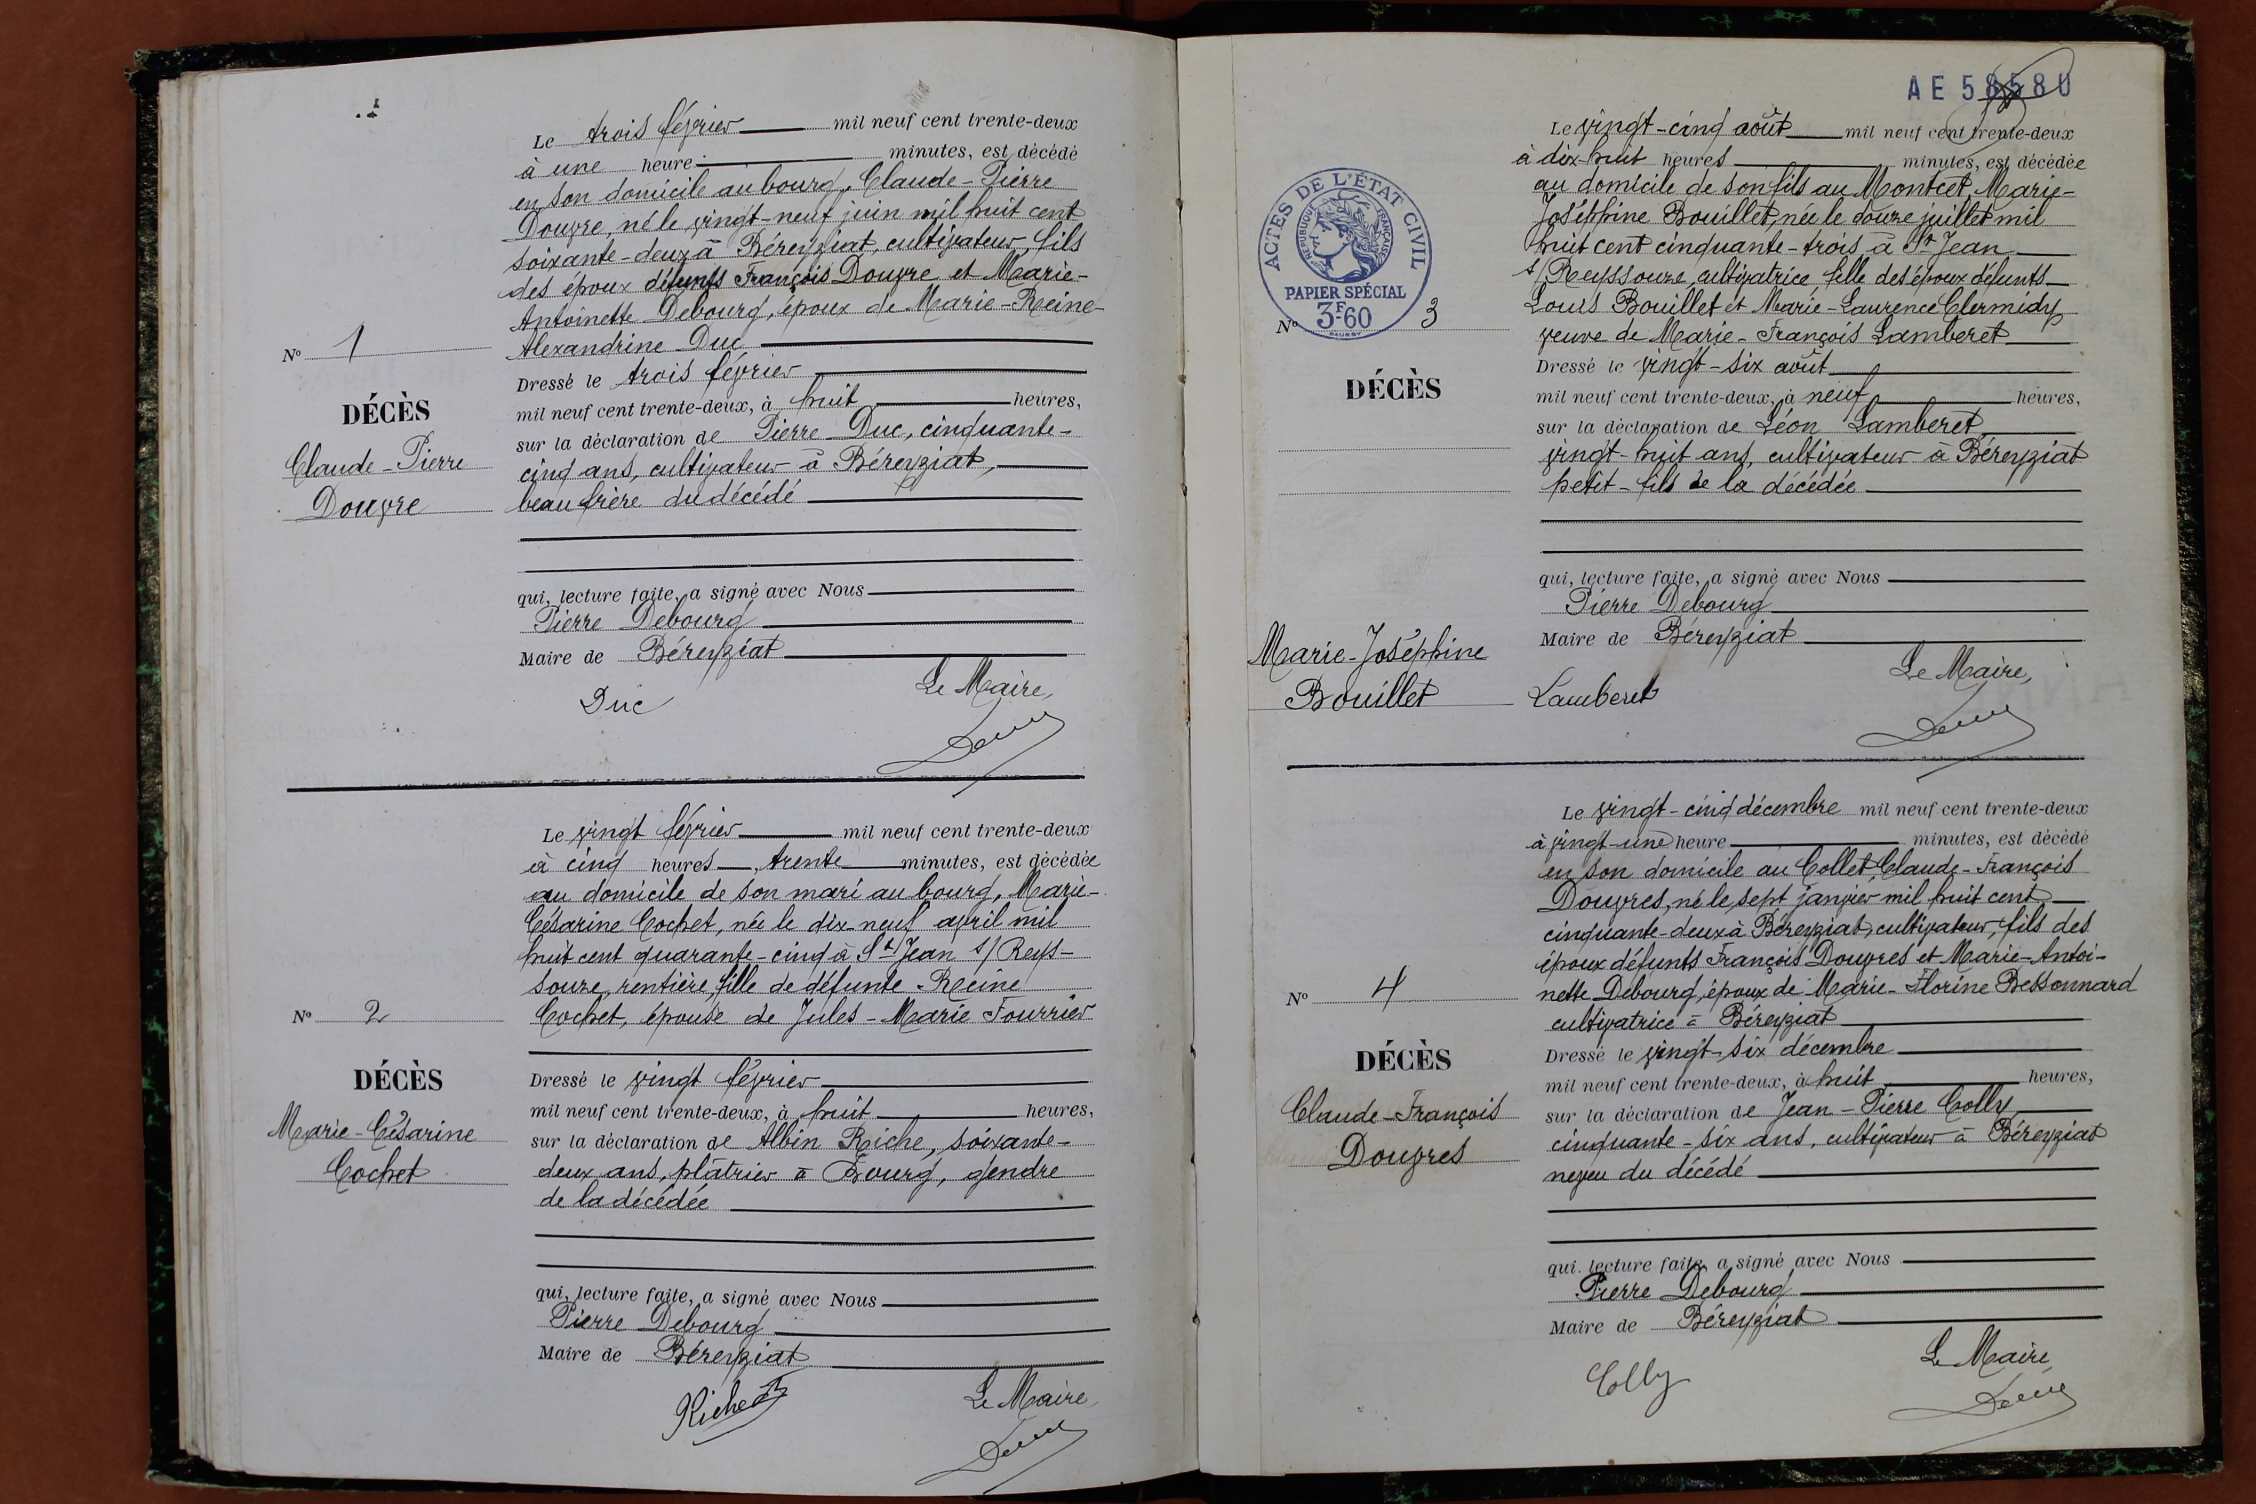 Le trois février mil neuf cent trente-deux
à une heure minutes, est décédé
en son domicile au bourg, Claude-Pierre
Douvre, né le vingt-neuf juin mil huit cent
soixante-deux à Béreyziat, cultivateur, fils
des époux défunts François Douvre et Marie-
Antoinette Debourg, époux de Marie-Reine-
Alexandrine Duc
Nº 1
DÉCÈS
Claude-Pierre
Douvre
Dressé le trois février
mil neuf cent trente-deux, à huit heures,
sur la déclaration de Pierre Duc, cinquante-
cinq ans, cultivateur à Béreyziat,
beau frère du décédé
qui, lecture faite, a signé avec Nous
Pierre Debourg
Maire de Béreyziat
Duc
Le Maire,
Le vingt février mil neuf cent trente-deux
à cinq heures, trente minutes, est décédée
au domicile de son mari au bourg, Marie-
Césarine Cochet, née le dix-neuf avril mil
huit cent quarante-cinq à St Jean s/ Reys-
souze, rentière, fille de défunte Reine
Cochet, épouse de Jules-Marie Fourrier
Nº 2
DÉCÈS
Marie-Césarine
Cochet
Dressé le vingt février
mil neuf cent trente-deux, à huit heures,
sur la déclaration de Albin Riche, soixante-
deux ans, plâtrier à Bourg, gendre
de la décédée
qui, lecture faite, a signé avec Nous
Pierre Debourg
Maire de Béreyziat
Le Maire,
AE 58580
ACTES DE L'ÉTAT CIVIL
RÉPUBLIQUE FRANÇAISE
PAPIER SPÉCIAL
3F.60
Le vingt-cinq août mil neuf cent trente-deux
à dix-huit heures minutes, est décédée
au domicile de son fils au Montcet, Marie-
Joséphine Bouillet, née le douze juillet mil
huit cent cinquante-trois à St Jean
s/ Reyssouze, cultivatrice, fille des époux défunts
Louis Bouillet et Marie-Laurence Clermidy
veuve de Marie-François Lamberet
Nº 3
DÉCÈS
Marie-Joséphine
Bouillet
Dressé le vingt-six août
mil neuf cent trente-deux, à neuf heures,
sur la déclaration de Léon Lamberet
vingt-huit ans, cultivateur à Béreyziat
petit-fils de la décédée
qui, lecture faite, a signé avec Nous
Pierre Debourg
Maire de Béreyziat
Lamberet
Le Maire,
Le vingt-cinq décembre mil neuf cent trente-deux
à vingt-une heure minutes, est décédé
en son domicile au Collet, Claude-François
Douvres, né le sept janvier mil huit cent
cinquante-deux à Béreyziat, cultivateur, fils des
époux défunts François Douvres et Marie-Antoi-
nette Debourg, époux de Marie-Florine Bessonnard
cultivatrice à Béreyziat
Nº 4
DÉCÈS
Claude-François
Douvres
Dressé le vingt-six décembre
mil neuf cent trente-deux, à huit heures,
sur la déclaration de Jean-Pierre Colly
cinquante-six ans, cultivateur à Béreyziat
neveu du décédé
qui, lecture faite, a signé avec Nous
Pierre Debourg
Maire de Béreyziat
Colly
Le Maire,